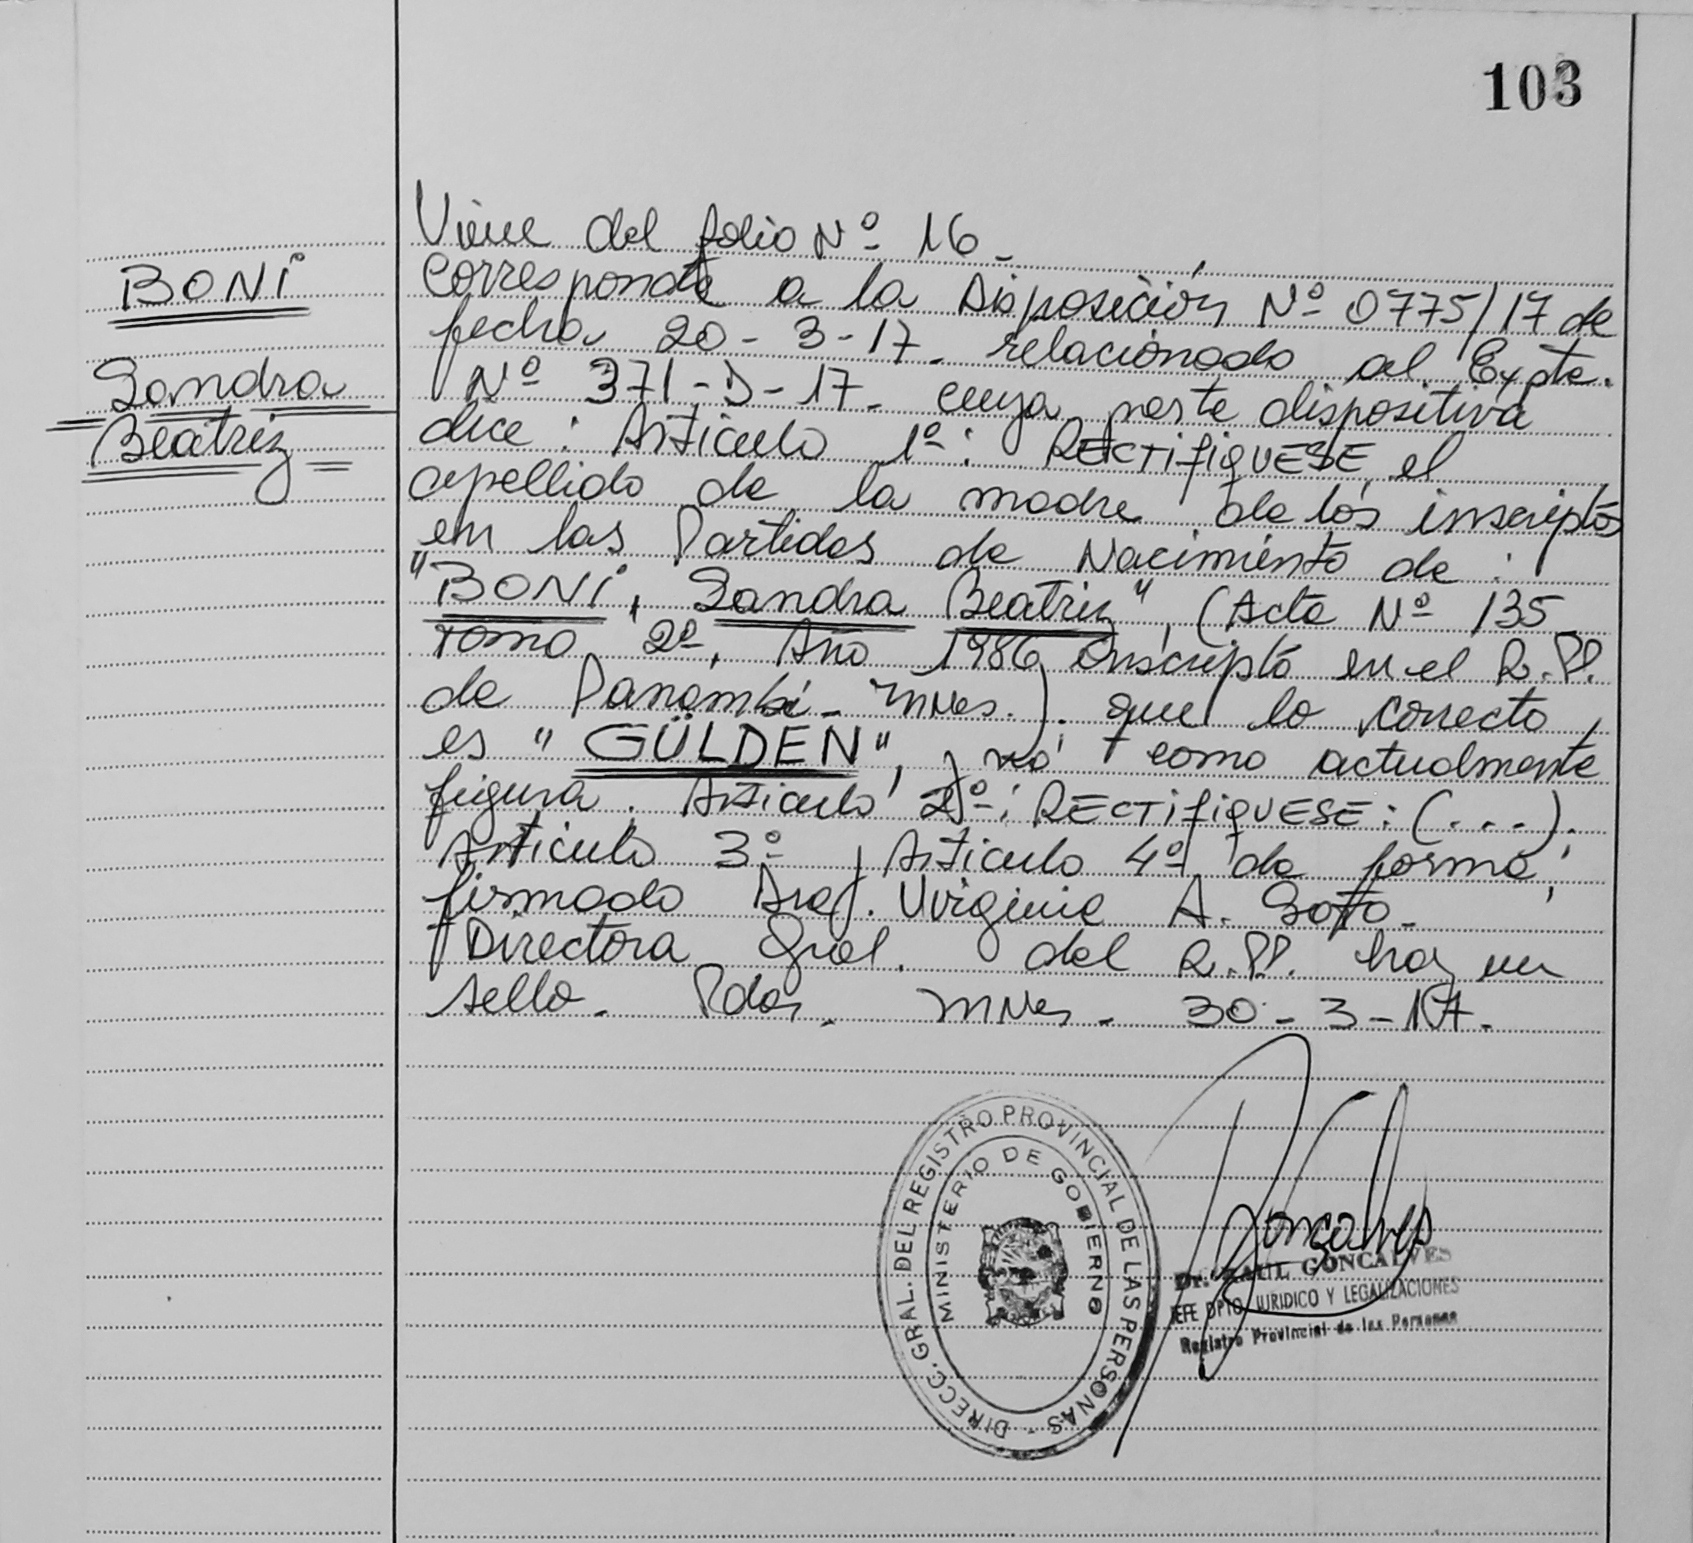 103
BONI
Sandra
Beatriz
Viene del folio Nº 16.
Corresponde a la Disposición Nº 0775/17 de
fecha 20-3-17. relacionado al Expte.
Nº 371-D-17. cuya parte dispositiva
dice: Artículo 1º: RECTIFIQUESE el
apellido de la madre de los inscriptos
en las Partidas de Nacimiento de:
"BONI, Sandra Beatriz", (Acta Nº 135
Tomo 2º, Año 1986 inscripto en el R.PP.
de Panambí - Mnes.). que lo correcto
es "GÜLDEN", y no como actualmente
figura. Artículo 2º: RECTIFIQUESE: (...).
Artículo 3º y Artículo 4º de forma;
firmado Virginia A. Soto.
Directora Gral. del R.PP. hay un
sello. Pdas. Mnes. 30-3-17.
DIRECC. GRAL. DEL REGISTRO PROVINCIAL DE LAS PERSONAS
MINISTERIO DE GOBIERNO
Goncalves
Dr. RAUL GONCALVES
JEFE DPTO. JURIDICO Y LEGALIZACIONES
Registro Provincial de las Personas